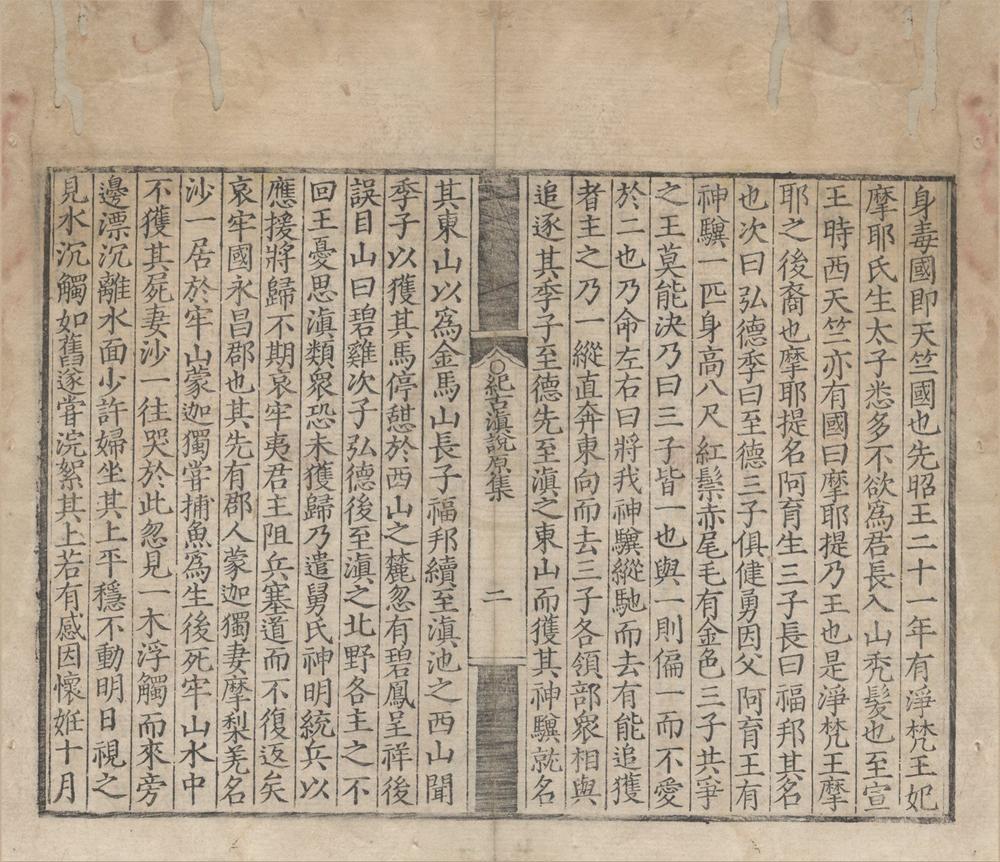 身毒國即天竺國也先昭王二十一年有淨梵王妃
摩耶氏生太子悉多不欲為君長入山禿髮也至宣
王時西天竺亦有國曰摩耶提乃王也是淨梵王摩
耶之後裔也摩耶提名阿育生三子長曰福邦其名
也次曰弘德季曰至德三子俱健勇因父阿育王有
神驥一匹身高八尺紅鬃赤尾毛有金色三子共爭
之王莫能決乃曰三子皆一也與一則偏一而不愛
於二也乃命左右曰將我神驥縱馳而去有能追獲
者主之乃一縱直奔東向而去三子各領部眾相與
追逐其季子至德先至滇之東山而獲其神驥就名
紀古滇說原集
二
其東山以為金馬山長子福邦續至滇池之西山聞
季子以獲其馬停憩於西山之麓忽有碧鳳呈祥後
誤目山曰碧雞次子弘德後至滇之北野各主之不
回王憂思滇類眾恐未獲歸乃遣舅氏神明統兵以
應援將歸不期哀牢夷君主阻兵塞道而不復返矣
哀牢國永昌郡也其先有郡人蒙迦獨妻摩梨羌名
沙一居於牢山蒙迦獨嘗捕魚為生後死牢山水中
不獲其屍妻沙一往哭於此忽見一木浮觸而來旁
邊漂沉離水面少許婦坐其上平穩不動明日視之
見水沉觸如舊遂嘗浣絮其上若有感因懷妊十月